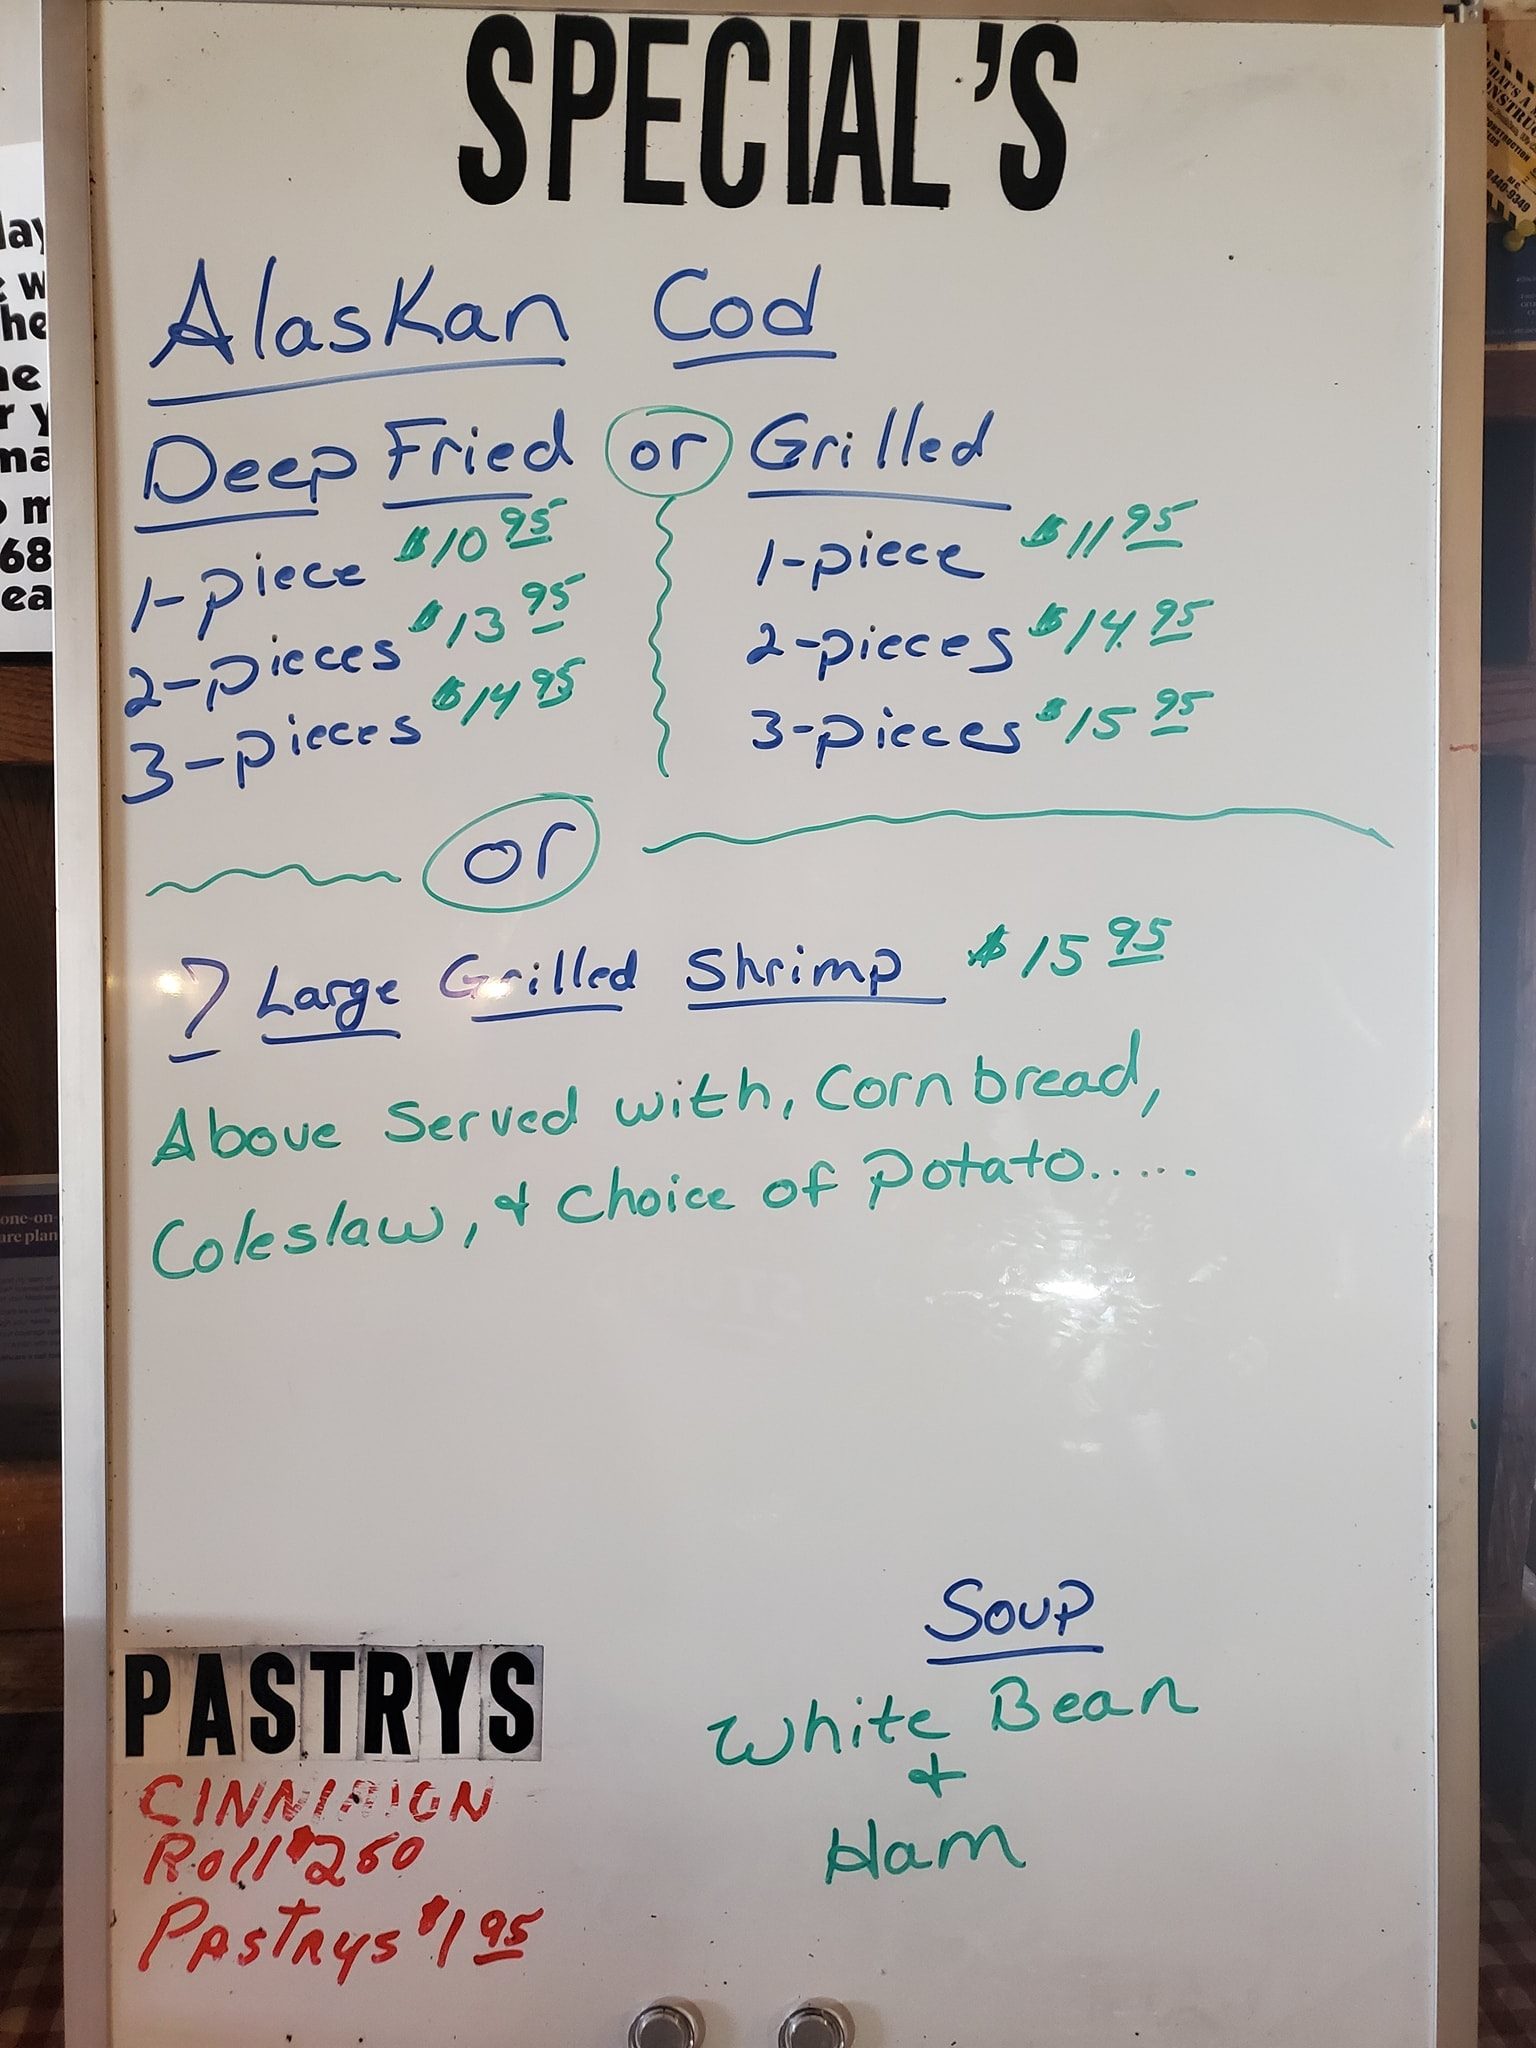 SPECIAL'S
Alaskan Cod
Deep Fried or Grilled
1-piece $10 95
2-pieces $13 95
3-pieces $14 95
1-piece $11 95
2-pieces $14. 95
3-pieces $15 95
or
7 Large Grilled Shrimp $15 95
Above Served with, Cornbread,
Coleslaw, & Choice of Potato.....
Soup
White Bean
&
Ham
PASTRYS
CINNIMON
Roll $2 60
PAstRys $1 95